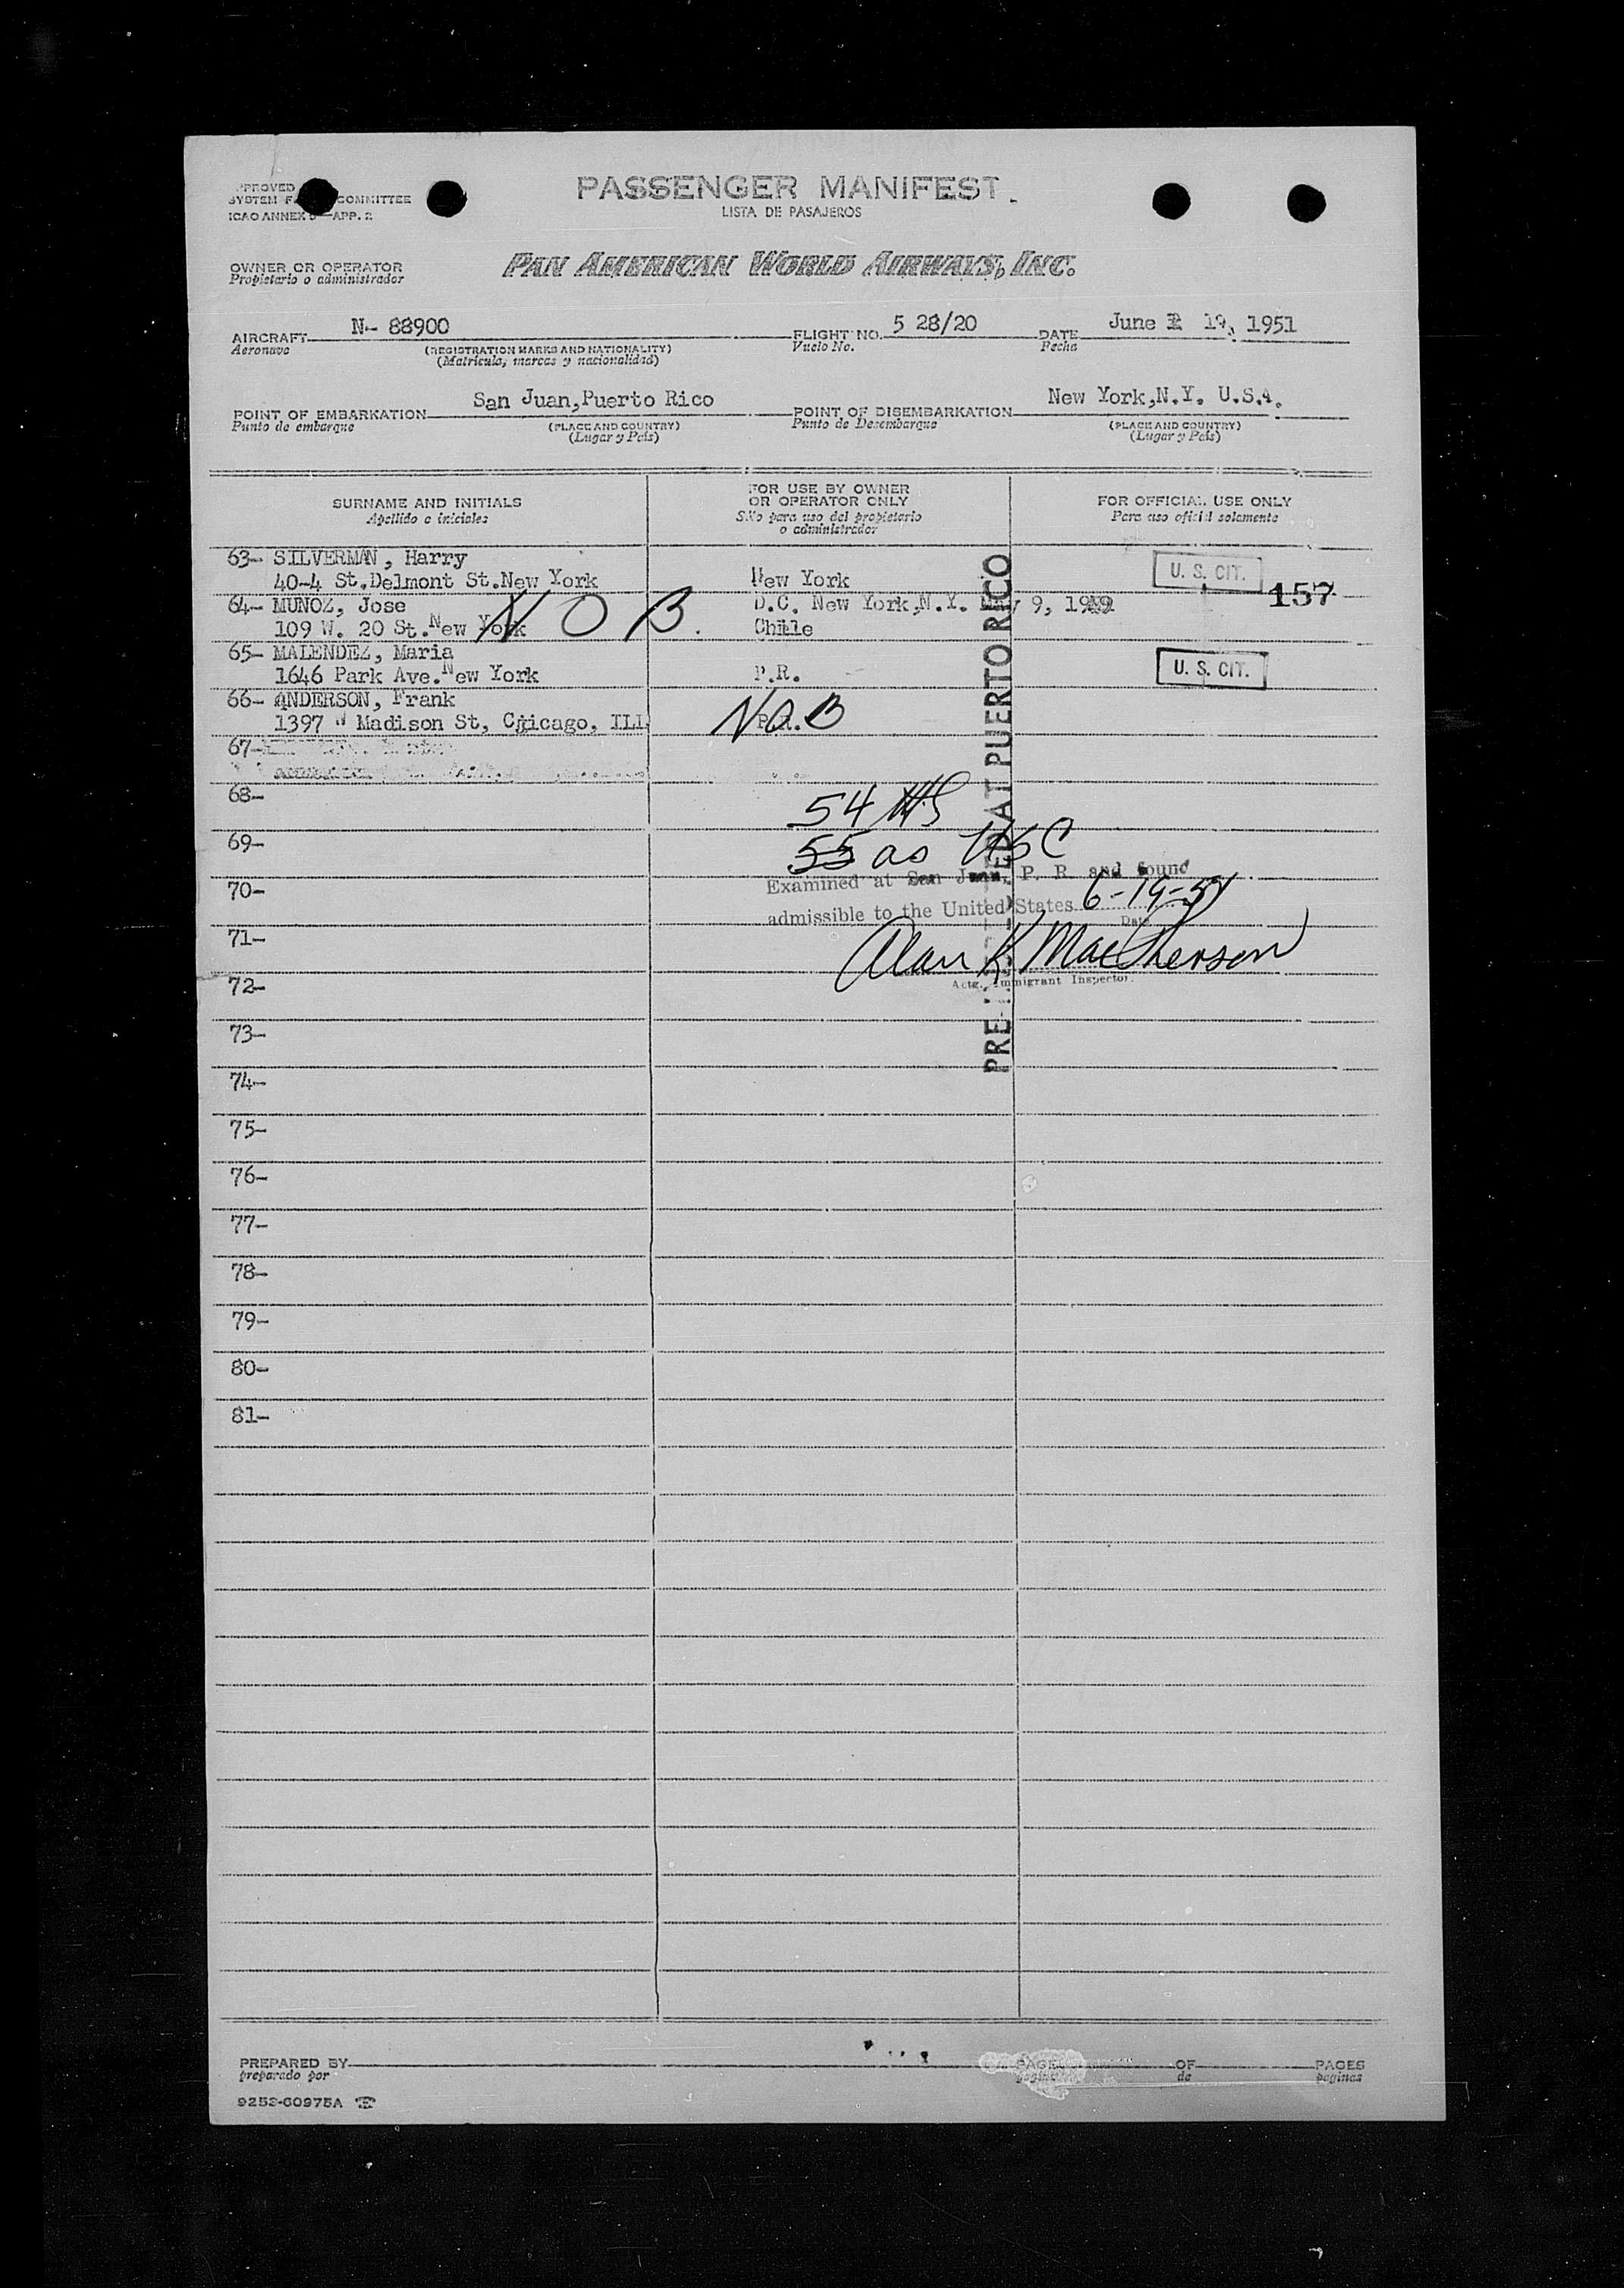 PASSENGER MANIFEST
LISTA DE PASAJEROS
PPROVED COMMITTEE
SYSTEM
ICAO ANNEX 9—APP. 2
OWNER OR OPERATOR
Propietario o administrador
PAN AMERICAN WORLD AIRWAYS, INC.
AIRCRAFT N- 88900 FLIGHT NO. 5 28/20 DATE June 19, 1951
Aeronave (REGISTRATION MARKS AND NATIONALITY) Vuelo No. Fecha
(Matricula, marcas y nacionalidad)
POINT OF EMBARKATION San Juan,Puerto Rico POINT OF DISEMBARKATION New York,N.Y. U.S.A.
Punto de embarque (PLACE AND COUNTRY) Punto de Desembarque (PLACE AND COUNTRY)
(Lugar y País) (Lugar y País)
SURNAME AND INITIALS
Apellido e iniciales
FOR USE BY OWNER
OR OPERATOR ONLY
Sólo para uso del propietario
o administrador
FOR OFFICIAL USE ONLY
Para uso oficial solamente
63- SILVERMAN, Harry
40-4 St.Delmont St.New York New York U. S. CIT. 157
64- MUNOZ, Jose D.C. New York,N.Y. 9, 19
109 W. 20 St.New York N O B. Chile
65- MALENDEZ, Maria
1646 Park Ave.New York P.R. U. S. CIT.
66- ANDERSON, Frank
1397 W Madison St, Chicago, ILL P.R. NOB
67-
68- 54
69- 55 as USC
70- Examined at San Juan, P. R. and found
admissible to the United States 6-19-51
Date
71- Alan K MacPherson
72- Actg. Immigrant Inspector.
73-
74-
75-
76-
77-
78-
79-
80-
81-
AT PUERTO RICO
PREPARED BY PAGE OF PAGES
preparado por pagina de paginas
9253-60975A